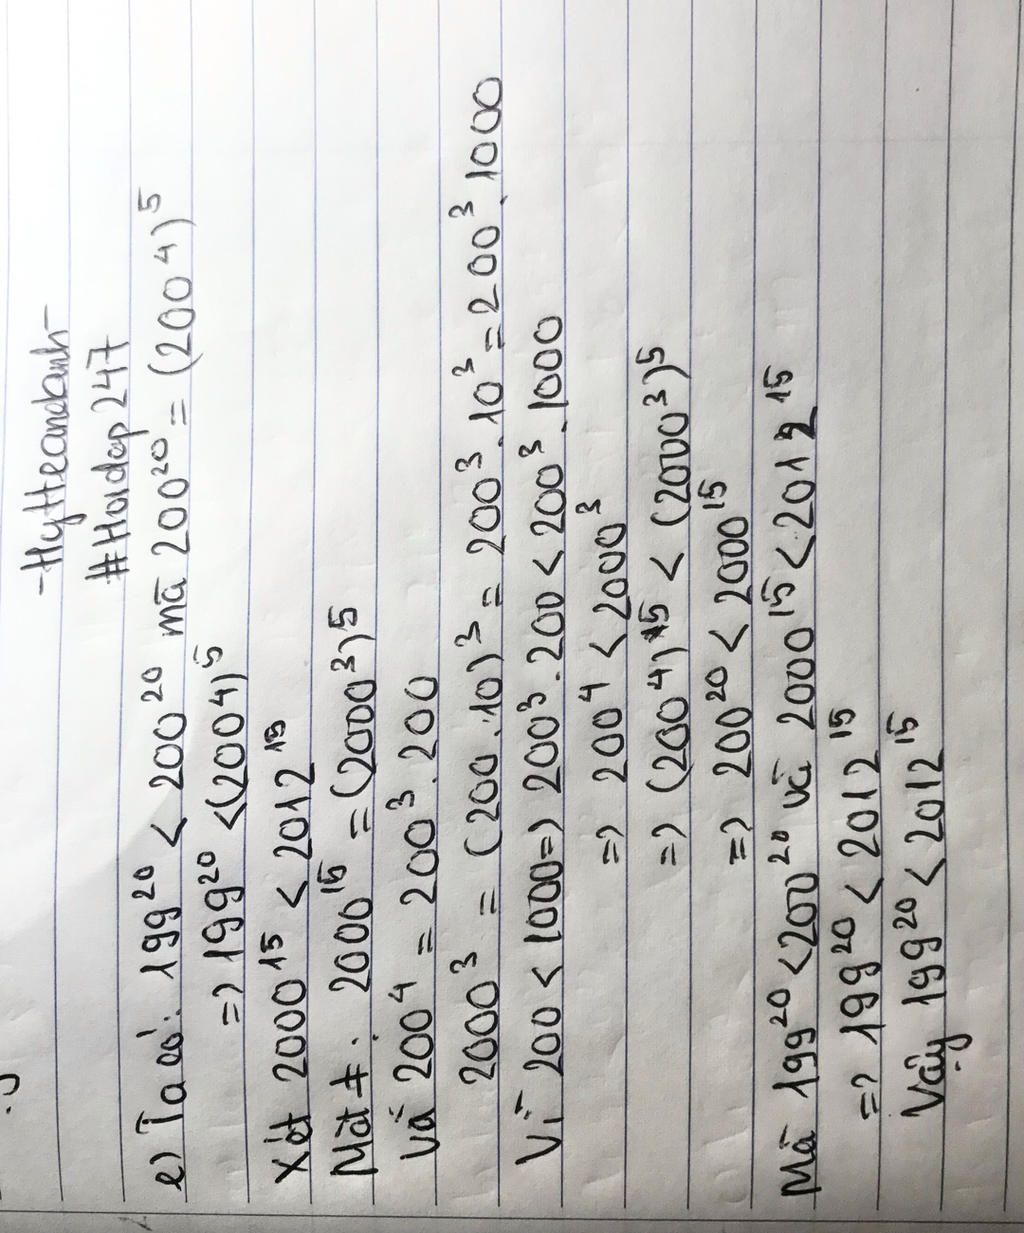 -Hytteandanh-
#Hoidap247
e) Ta có: 199²⁰ < 200²⁰ mà 200²⁰ = (200⁴)⁵
=> 199²⁰ < (200⁴)⁵
Xét 2000¹⁵ < 2012¹⁵
Mặt ≠. 2000¹⁵ = (2000³)⁵
Và 200⁴ = 200³.200
2000³ = (200.10)³ = 200³.10³ = 200³.1000
Vì 200 < 1000 => 200³.200 < 200³.1000
=> 200⁴ < 2000³
=> (200⁴)⁵ < (2000³)⁵
=> 200²⁰ < 2000¹⁵
Mà 199²⁰ < 200²⁰ và 2000¹⁵ < 2012¹⁵
=> 199²⁰ < 2012¹⁵
Vậy 199²⁰ < 2012¹⁵